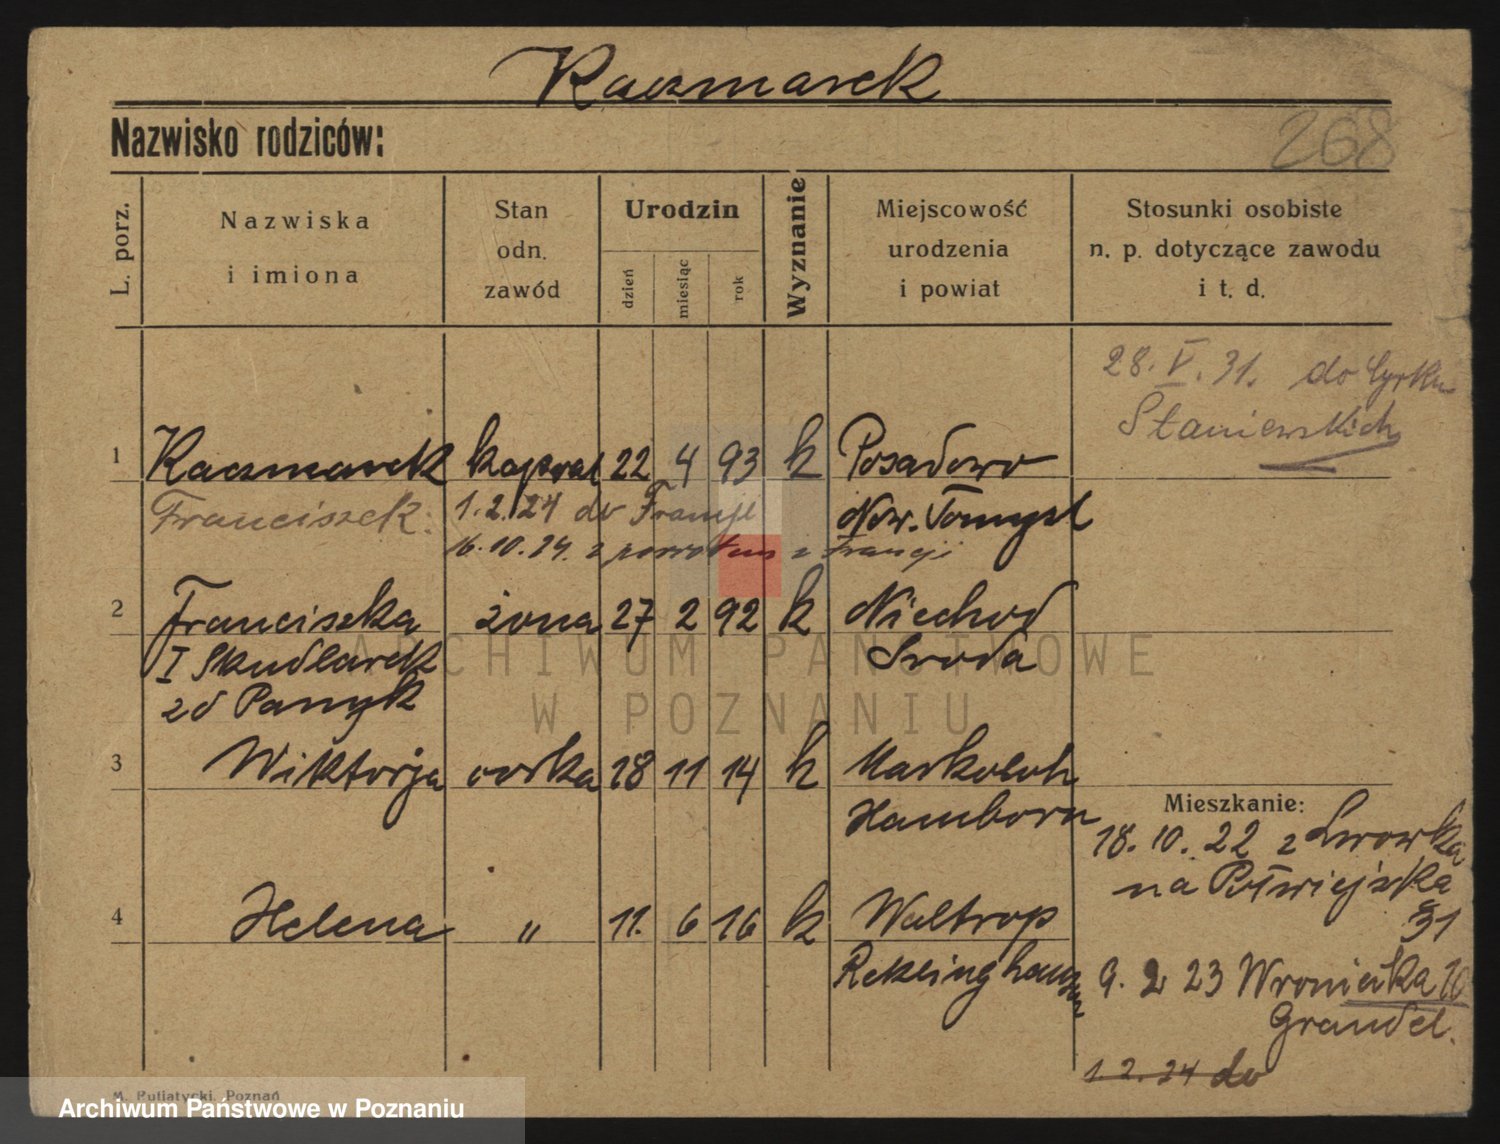 Kaczmarek
Nazwisko rodziców:
268
L. porz.
Nazwiska
i imiona
Stan
odn.
zawód
Urodzin
dzień
miesiąc
rok
Wyznanie
Miejscowość
urodzenia
i powiat
Stosunki osobiste
n. p. dotyczące zawodu
i t. d.
28. V. 31. do Cyrku
Staniewskich
1 Kaczmarek kapral 22 4 93 k Posadowo
Franciszek. 1.2.24 do Francji Now. Tomysl
16.10.24. z powrotem z Francji
2 Franciszka żona 27 2 92 k Niechod
I Skudlarek Sroda
zd
3 Wiktorja corka 18 11 14 k
Hamborn
Mieszkanie:
18. 10. 22 z Lwowka
na Półwiejska
31
4 Helena " 11. 6 16 k Waltrop
Reklinghausen
9. 2 23 Wroniecka 10
Graudel.
1. 2. 24 do
ARCHIWUM PAŃSTWOWE
W POZNANIU
M. Putiatycki, Poznań
Archiwum Państwowe w Poznaniu